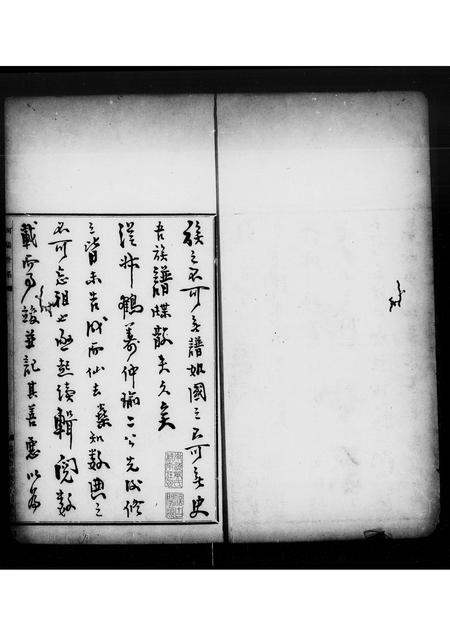 族之不可無譜如國之不可無史
吾族譜牒散失久矣
從叔鶴壽仲瑜二公先後修
之皆未告成而仙去余知數典之
不可忘祖也亟起續輯閱數
載而事竣並記其善惡以為